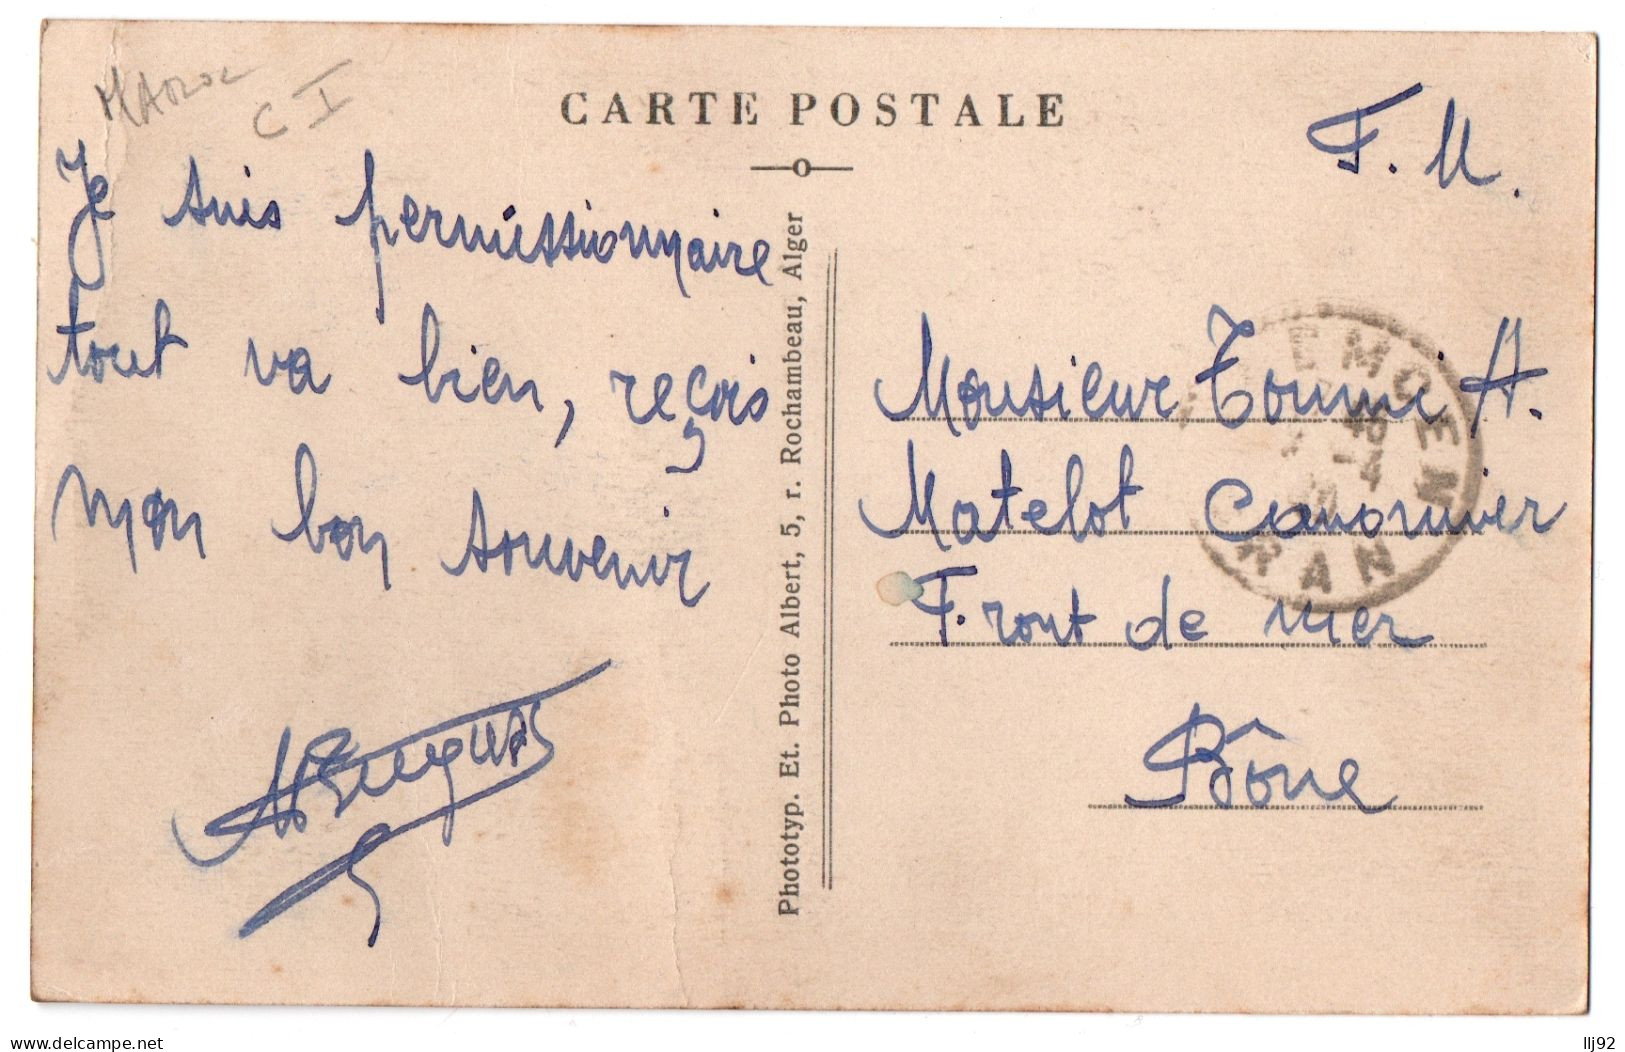 Maroc
C I
CARTE POSTALE
F. M.
Je suis permissionnaire
tout va bien, reçois
mon bon souvenir
Phototyp. Et. Photo Albert, 5, r. Rochambeau, Alger
Monsieur Toumi A.
Matelot Canonnier
Front de mer
Bône
EMCEN
RAN
llj92